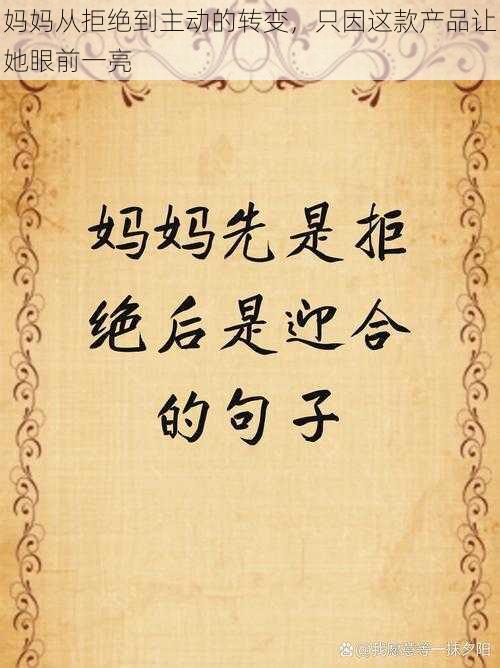 妈妈从拒绝到主动的转变，只因这款产品让
她眼前一亮
妈妈先是拒
绝后是迎合
的句子